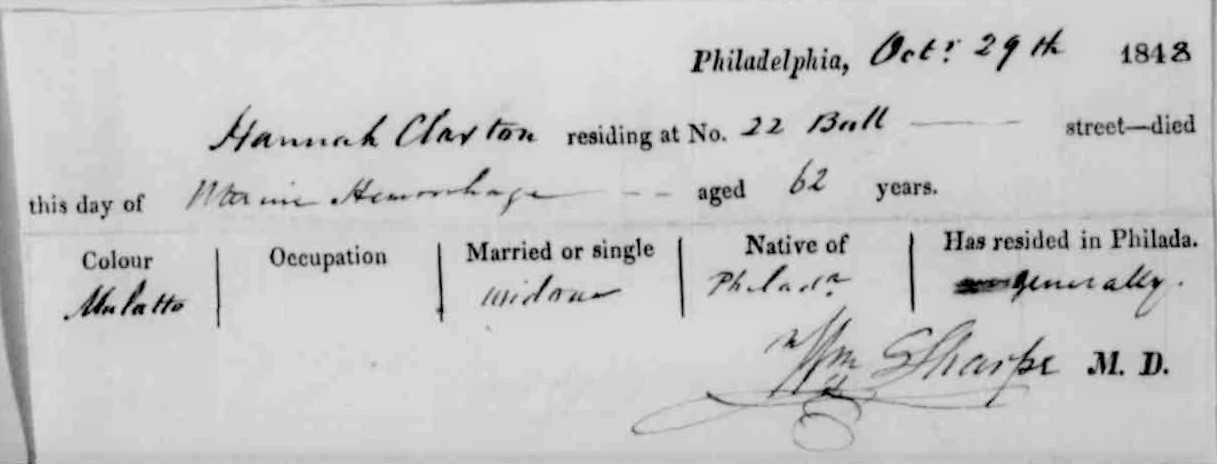 Philadelphia, Octr. 29th 1848
Hannah Claxton residing at No. 22 Bull street—died
this day of Uterine Hemorrhage aged 62 years.
Colour Occupation Married or single Native of Has resided in Philada.
Mulatto widow Philada. generally.
Wm Sharpe M. D.